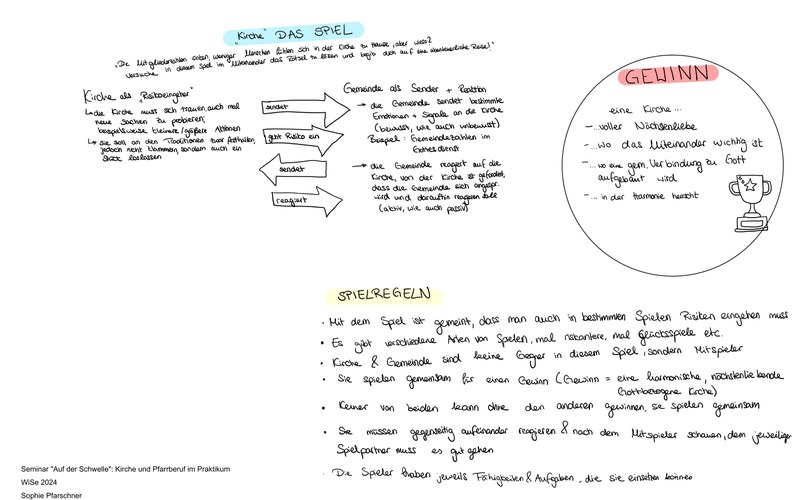 "Kirche" DAS SPIEL
"Die Mitgliederzahlen sinken, weniger Menschen fühlen sich in der Kirche zu Hause, aber wieso?
Versuche in diesem Spiel im Miteinander das Rätsel zu lösen und begib dich auf eine abenteuerliche Reise!"
Kirche als "Risikoeingeher"
↳ die Kirche muss sich trauen, auch mal
neue Sachen zu probieren;
beispielsweise kleinere/größere Aktionen
↳ sie soll an den Traditionen zwar festhalten,
jedoch nicht klammern, sondern auch ein
Stück loslassen
sendet
geht Risiko ein
sendet
reagiert
Gemeinde als Sender + Reaktion
→ die Gemeinde sendet bestimmte
Emotionen + Signale an die Kirche
(bewusst, wie auch unbewusst)
Beispiel: Gemeindezahlen im
Gottesdienst
→ die Gemeinde reagiert auf die
Kirche, von der Kirche ist gefordert,
dass die Gemeinde sich angespr.
wird und daraufhin reagieren
(aktiv, wie auch passiv)
GEWINN
eine Kirche...
-...voller Nächstenliebe
-...wo das Miteinander wichtig ist
-...wo eine gem. Verbindung zu Gott
aufgebaut wird
-... in der Harmonie herrscht
SPIELREGELN
· Mit dem Spiel ist gemeint, dass man auch in bestimmten Spielen Risiken eingehen muss
· Es gibt verschiedene Arten von Spielen, mal riskantere, mal Glücksspiele etc.
· Kirche & Gemeinde sind keine Gegner in diesem Spiel, sondern Mitspieler
· Sie spielen gemeinsam für einen Gewinn (Gewinn = eine harmonische, nächstenliebende
Gottbezogene Kirche)
· Keiner von beiden kann ohne den anderen gewinnen, sie spielen gemeinsam
· Sie müssen gegenseitig aufeinander reagieren & nach dem Mitspieler schauen, dem jeweiligen
Spielpartner muss es gut gehen
· Die Spieler haben jeweils Fähigkeiten & Aufgaben, die sie einsetzen können
Seminar "Auf der Schwelle": Kirche und Pfarrberuf im Praktikum
WiSe 2024
Sophie Pfarschner